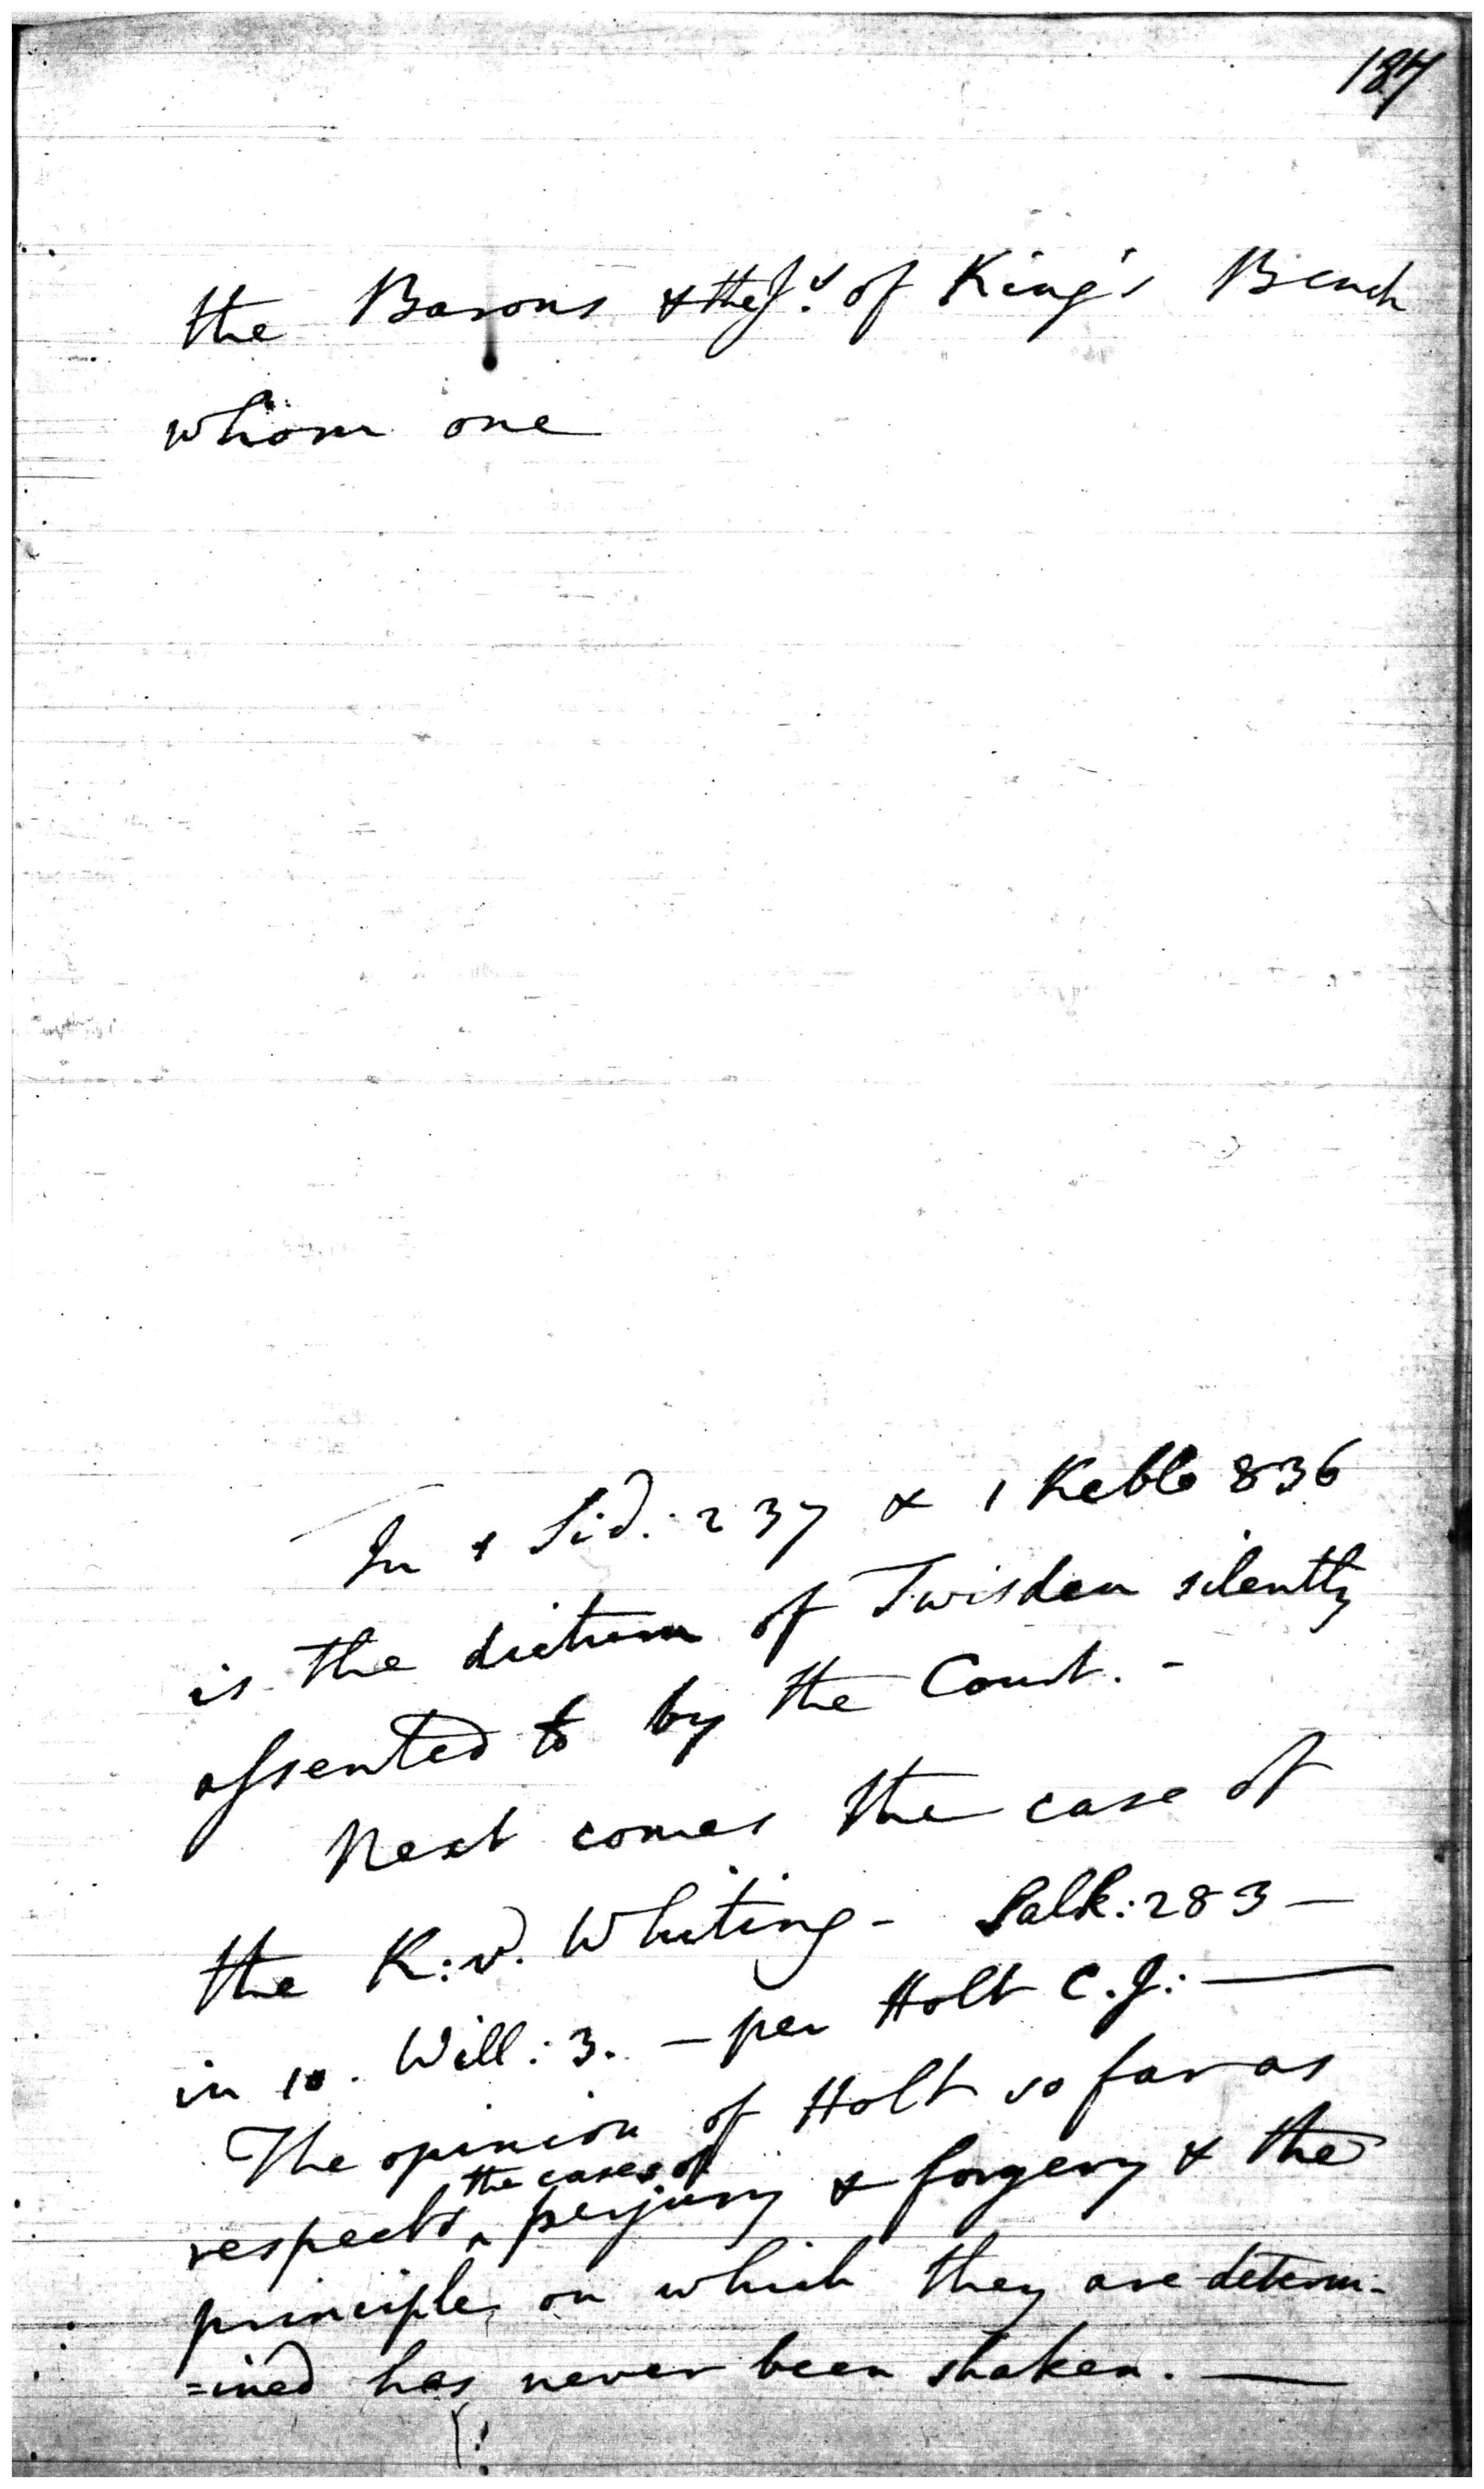 187
the Barons & the J.s of King's Bench
whom one
In 1 Sid: 237 & 1 Keble 836
is the dictum of Twisden silently
assented to by the Court. -
Next comes the case of
the K: v. Whiting - Salk: 283 -
in 10. Will: 3. - per Holt C. J: -
The opinion of Holt so far as
the cases of
respects ^ perjury & forgery & the
principles on which they are determ-
=ined has never been shaken. -